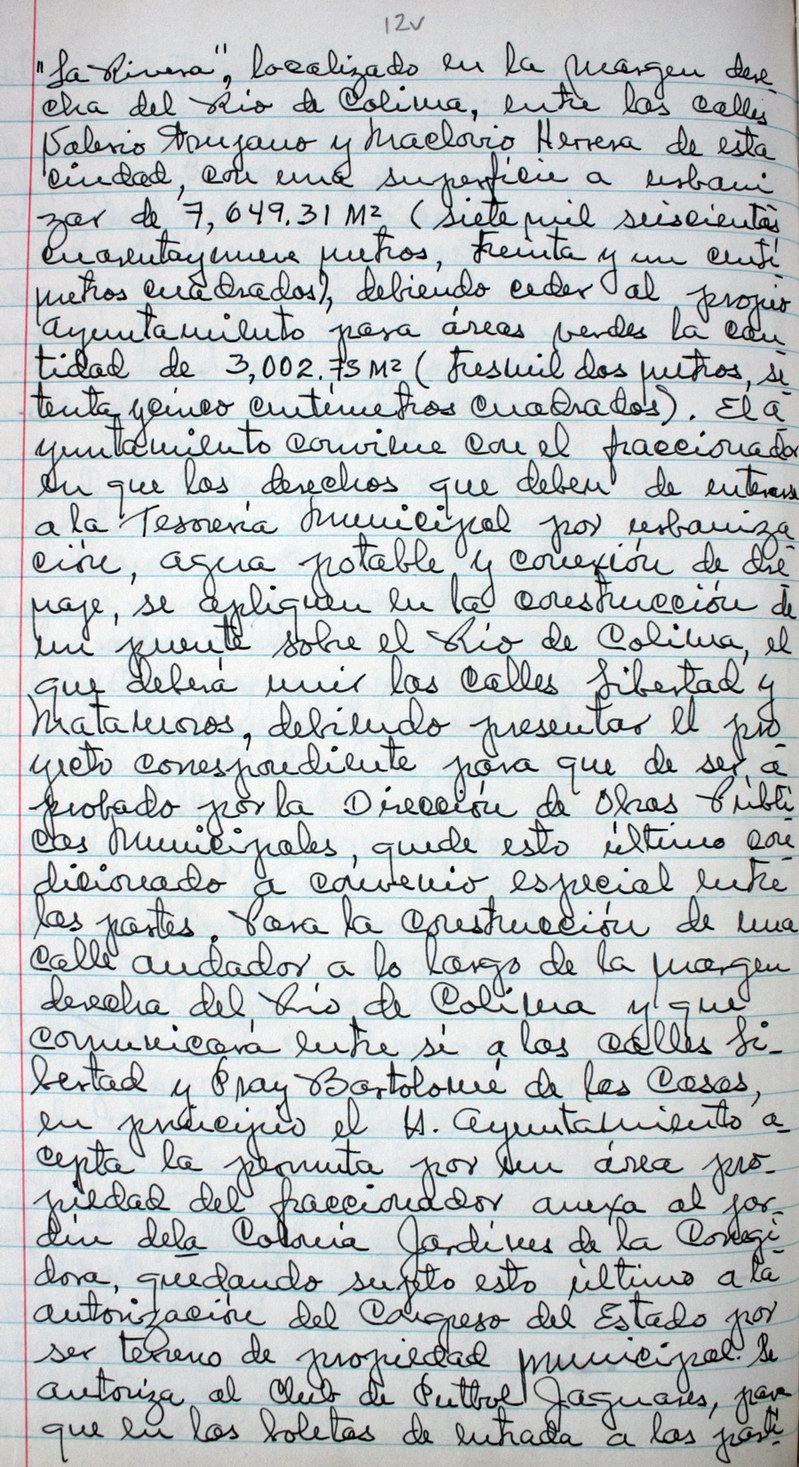 12v
"La Rivera", localizado en la margen dere
cha del Río de Colima, entre las calles
Valerio Trujano y Maclovio Herrera de esta
ciudad, con una superficie a urbani
zar de 7,649.31 M2 (siete mil seiscientos
cuarenta y nueve metros, treinta y un centí
metros cuadrados), debiendo ceder al propio
Ayuntamiento para áreas verdes la can
tidad de 3,002.75 M2 (tres mil dos metros, se
tenta y cinco centímetros cuadrados). El A
yuntamiento conviene con el fraccionador
en que los derechos que deben de enterarse
a la Tesorería Municipal por urbaniza
ción, agua potable y conexión de dre
naje, se apliquen en la construcción de
un puente sobre el Río de Colima, el
que deberá unir las calles Libertad y
Matamoros, debiendo presentar el pro
yecto correspondiente para que de ser a
probado por la Dirección de Obras Públi
cas Municipales, quede esto último con
dicionado a convenio especial entre
las partes. Para la construcción de una
calle andador a lo largo de la margen
derecha del Río de Colima y que
comunicará entre sí a las calles Li-
bertad y Fray Bartolomé de las Casas,
en principio el H. Ayuntamiento a-
cepta la permuta por un área pro-
piedad del fraccionador anexa al jar-
dín de la Colonia Jardines de la Corregi
dora, quedando sujeto esto último a la
autorización del Congreso del Estado por
ser terreno de propiedad municipal. Se
autoriza al Club de Futbol Jaguares, para
que en los boletos de entrada a los parti